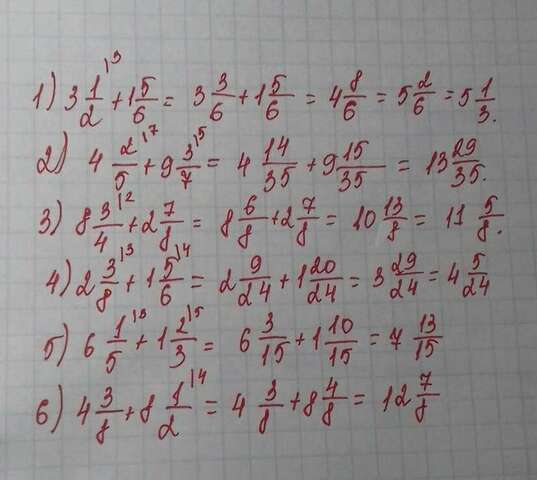 1) 3 1/2 \3 + 1 5/6 = 3 3/6 + 1 5/6 = 4 8/6 = 5 2/6 = 5 1/3.
2) 4 2/5 \7 + 9 3/7 \5 = 4 14/35 + 9 15/35 = 13 29/35.
3) 8 3/4 \2 + 2 7/8 = 8 6/8 + 2 7/8 = 10 13/8 = 11 5/8.
4) 2 3/8 \3 + 1 5/6 \4 = 2 9/24 + 1 20/24 = 3 29/24 = 4 5/24
5) 6 1/5 \3 + 1 2/3 \5 = 6 3/15 + 1 10/15 = 7 13/15
6) 4 3/8 + 8 1/2 \4 = 4 3/8 + 8 4/8 = 12 7/8